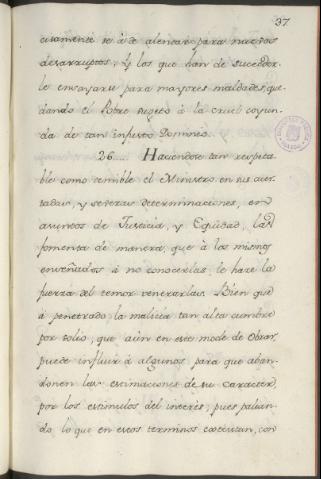 37
citamente se á de alentar para nuevos
desarruptos, y los que han de sucederle
le ensayarse para mayores maldades, que
dando el Pobre sugeto á la cruel coyun-
da de tan infesto Dominio.
26.... Haciendose tan respeta
ble como temible el Ministro en sus acer-
tadas, y severas determinaciones, en
asuntos de Justicia, y Equidad, las
fomenta de manera, que á los mismos
enseñados á no conocerlas, le hace la
fuerza del temor venerarlas. Bien que
á penetrado la malicia tan alta cumbre
por solio, que aun en este modo de Obrar,
puede influir á algunos para que aban-
donen las estimaciones de su Caracter,
por los estimulos del interés, pues palian-
do, lo que en estos terminos executan, con